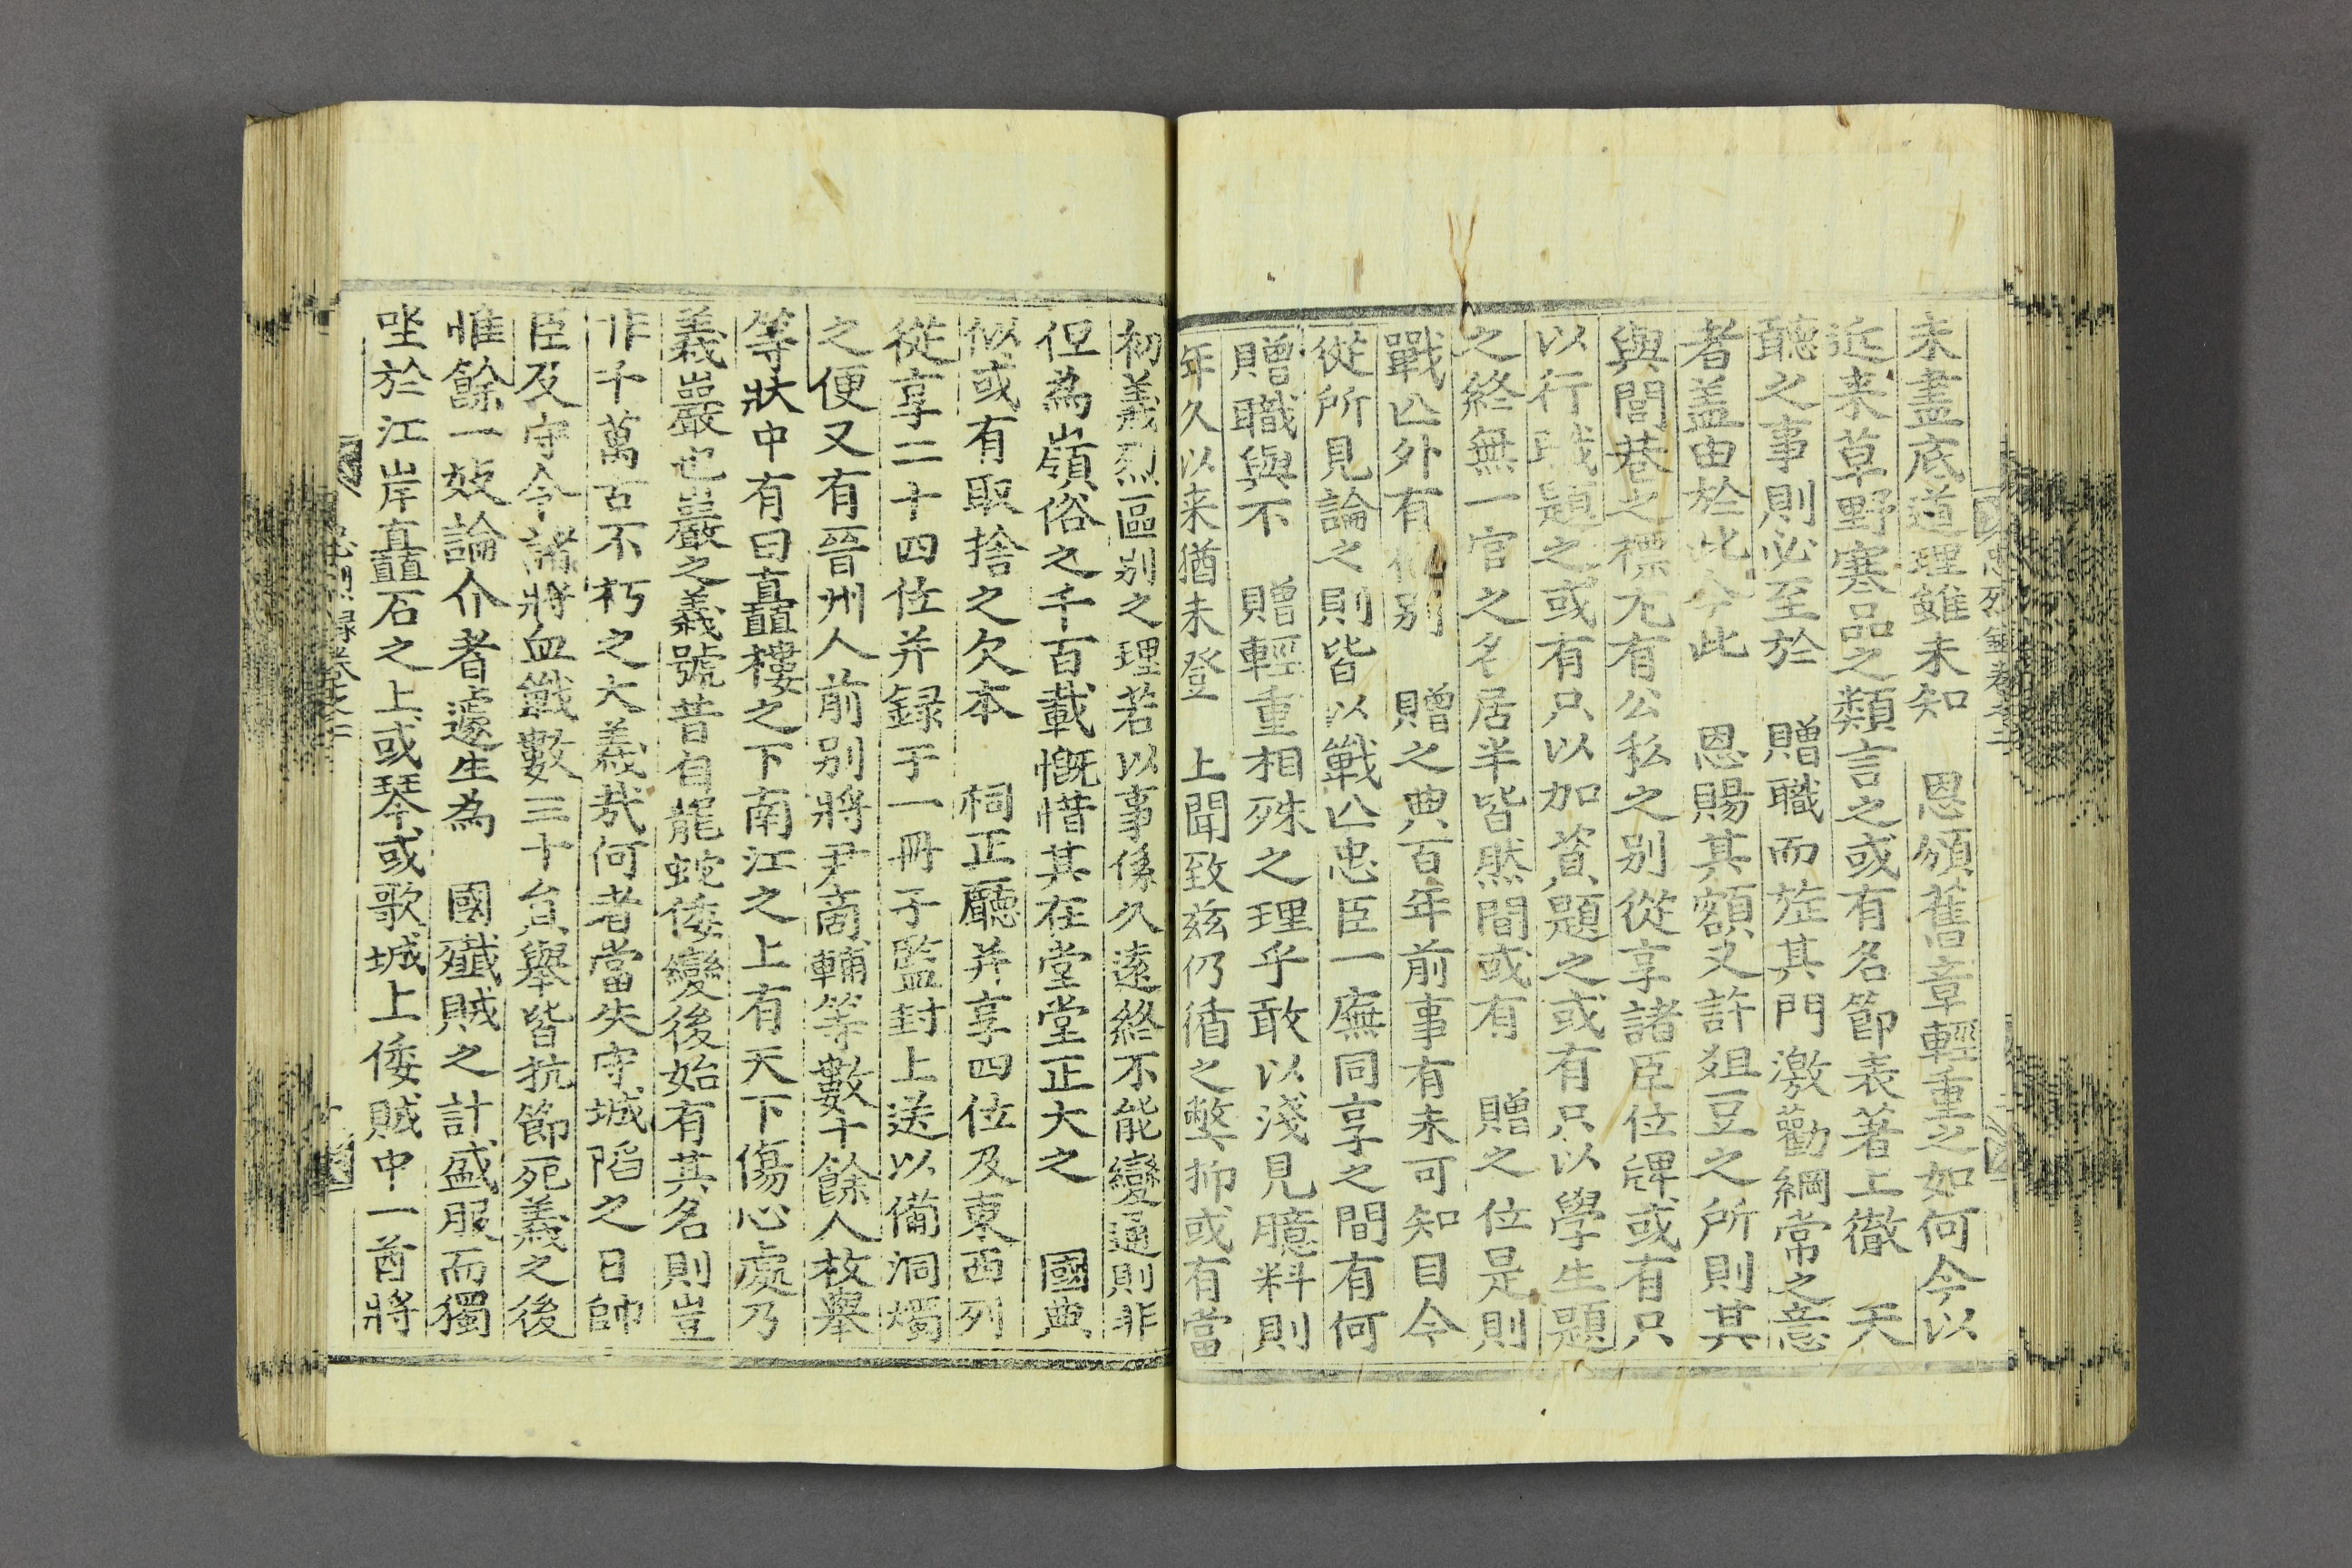 未盡底道理雖未知 恩頒舊章輕重之如何今以
近来草野寒品之類言之或有名節表著上徹 天
聽之事則必至於 贈職而旌其門激勸綱常之意
者盖由於此今此 恩賜其額又許俎豆之所則其
與閭巷之標尤有公私之別從享諸臣位牌或有只
以行職題之或有只以加資題之或有只以學生題
之終無一官之名居半皆然間或有 贈之位是則
戰亾外有 別 贈之典百年前事有未可知目今
從所見論之則皆以戰亾忠臣一廡同享之間有何
贈職與不 贈輕重相殊之理乎敢以淺見臆料則
年久以来猶未登 上聞致兹仍循之弊抑或有當
初義烈區別之理若以事係久遠終不能變通則非
但為嶺俗之千百載慨惜其在堂堂正大之 國典
似或有取捨之欠本 祠正廳并享四位及東西列
從享二十四位并録于一冊子監封上送以備洞燭
之便又有晉州人前別將尹商輔等數十餘人枚舉
等狀中有曰矗樓之下南江之上有天下傷心處乃
義巖也巖之義號昔自龍蛇倭變後始有其名則豈
非千萬古不朽之大義哉何者當失守城陷之日帥
臣及守令諸將血戰數三十員舉皆抗節死義之後
惟餘一妓論介者遽生為 國殲賊之計盛服而獨
坐於江岸矗石之上或琴或歌城上倭賊中一酋將
忠烈錄卷之二